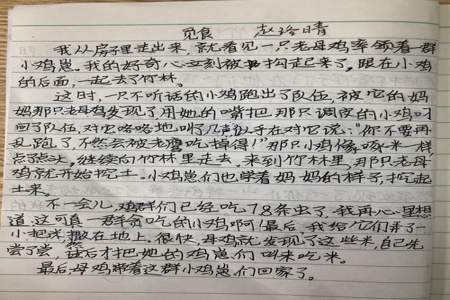 觅食 赵玲晴
我从房子里走出来,就看见一只老母鸡率领着一群
小鸡崽。我的好奇心立刻被勾起来了,跟在小鸡
的后面,一起去了竹林。
这时,一只不听话的小鸡跑出了队伍,被它的妈
妈那只老母鸡发现了用她的嘴把那只调皮的小鸡叼
回了队伍,对它咯咯地叫了几声似乎在对它说:"你不要再
乱跑了,不然会被老鹰吃掉得!"那只小鸡像啄米一样
点点头。继续向竹林里走去,来到竹林里,那只老母
鸡就开始挖土。小鸡崽们也学着妈妈的样子,挖起
土来。
不一会儿,鸡群们已经吃78条虫了,我再心里想
道,这可真一群贪吃的小鸡啊!最后,我给它们弄了一
小把米,撒在地上。很快,母鸡就发现了这些米,自己先
尝了尝,最后才把她的鸡崽们叫来吃米。
最后母鸡带着这群小鸡崽们回家了。